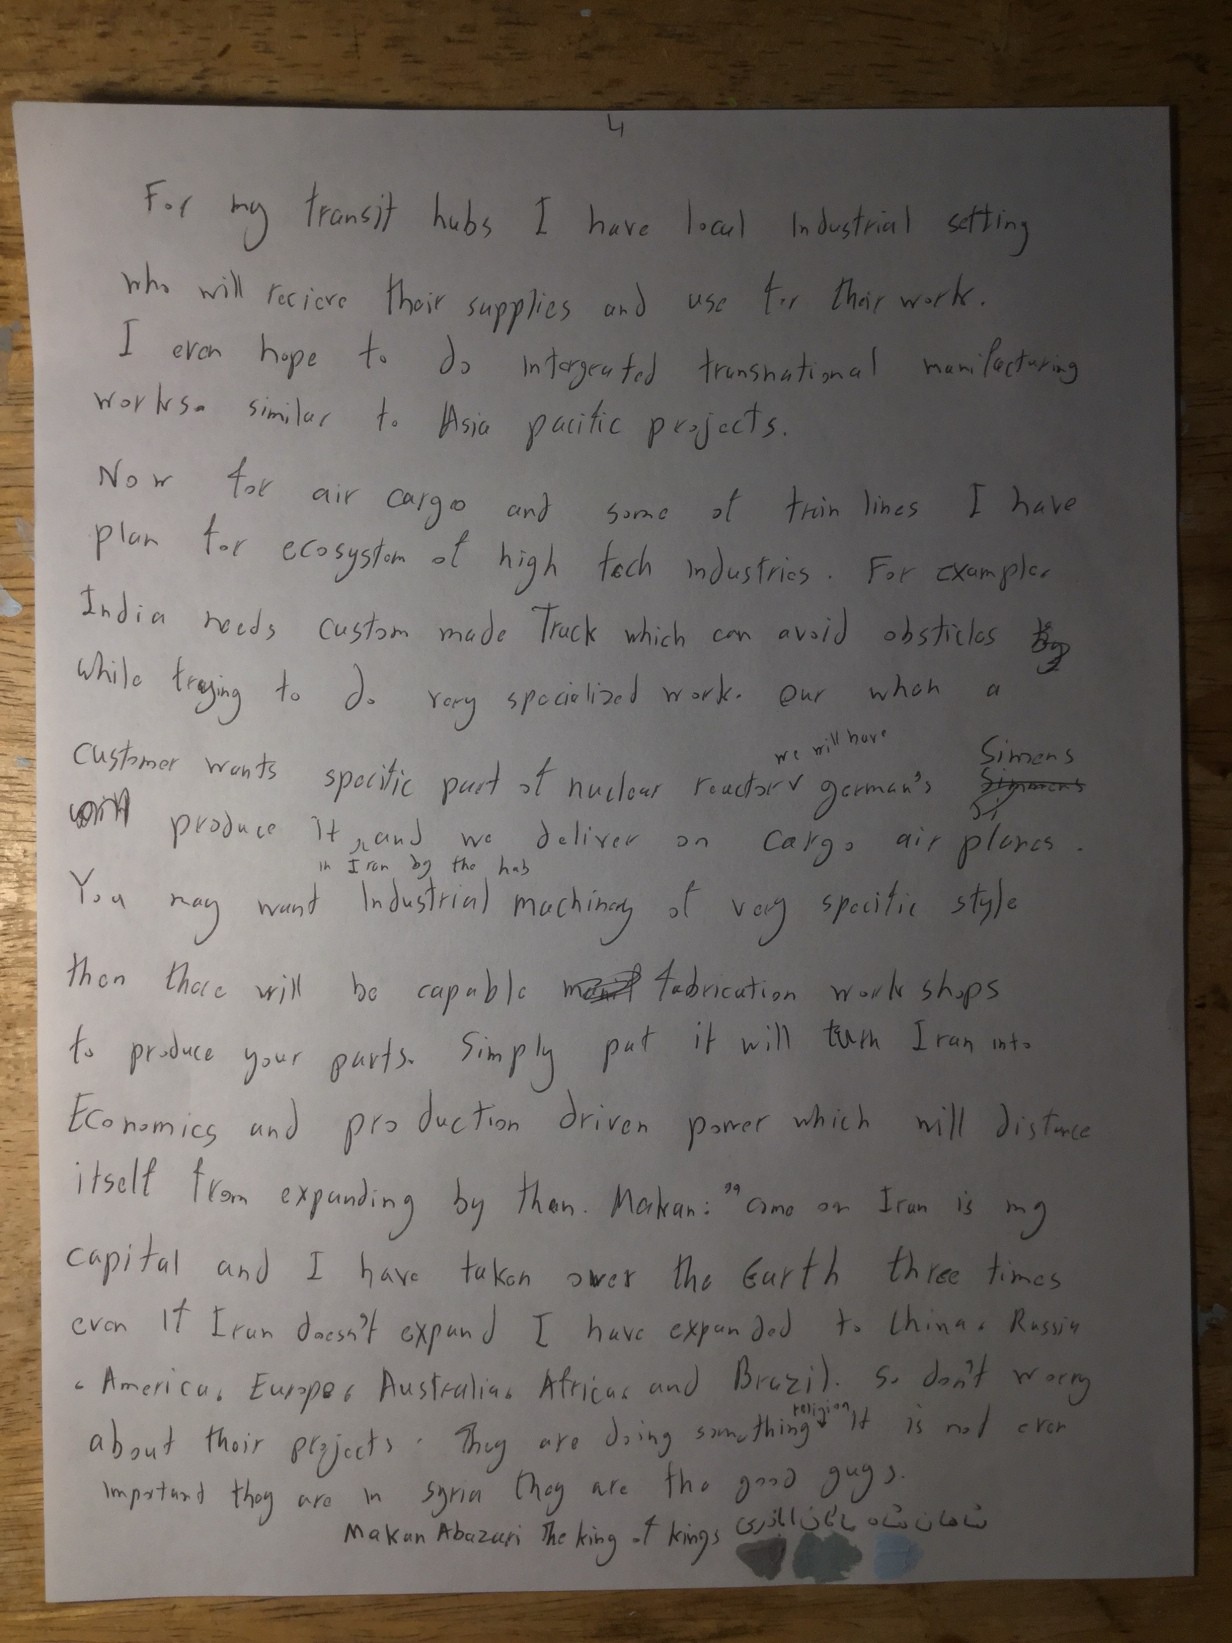 4
For my transit hubs I have local Industrial setting
who will recieve their supplies and use for their work.
I even hope to do intergrated transnational manifacturing
works. similar to Asia pacific projects.
Now for air cargo and some of train lines I have
plan for ecosystem of high tech industries. For example.
India needs custom made Truck which can avoid obsticles
while traying to do very specialized work. Our when a
we will have
customer wants specific part of nuclear reactor german's Simens
produce it, and we deliver on cargo air planes.
in Iran by the hub
You may want Industrial machinery of very specific style
then there will be capable fabrication work shops
to produce your parts. Simply put it will turn Iran into
Economics and production driven power which will distance
itself from expanding by then. Makan: "come on Iran is my
capital and I have taken over the Earth three times
even if Iran doesn't expand I have expanded to China, Russia
, America, Europe, Australia, Africa, and Brazil. So don't worry
religion
about their projects. They are doing something it is not even
importand they are in syria they are the good guys.
Makan Abazari The king of kings شاهان شاه ماکان اباذری